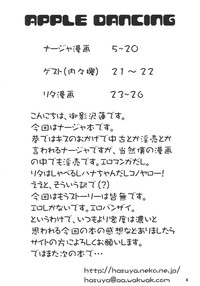 APPLE DANCING
ナージャ漫画　5~20
ゲスト(内々欅)　21~22
リタ漫画　23~26
こんにちは、御影沢蓮です。
今回はナージャ本です。
巷ではキスのおかげで中古とか淫売とか
言われるナージャですが、当然僕の漫画
の中でも淫売です。エロマンガだし。
リタはしゃべるしハナちゃんだしコノヤロー!
ええと、そういう訳で(?)
今回はもうストーリーは皆無です。
エロしかないです。エロバンザイ。
というわけで、いつもより密度は濃いと
思われる今回の本の感想などありましたら
サイトの方によろしくお願いします。
ではまた次の本で…
http://hasuya.neko.ne.jp/
hasuya@aa.wakwak.com
4